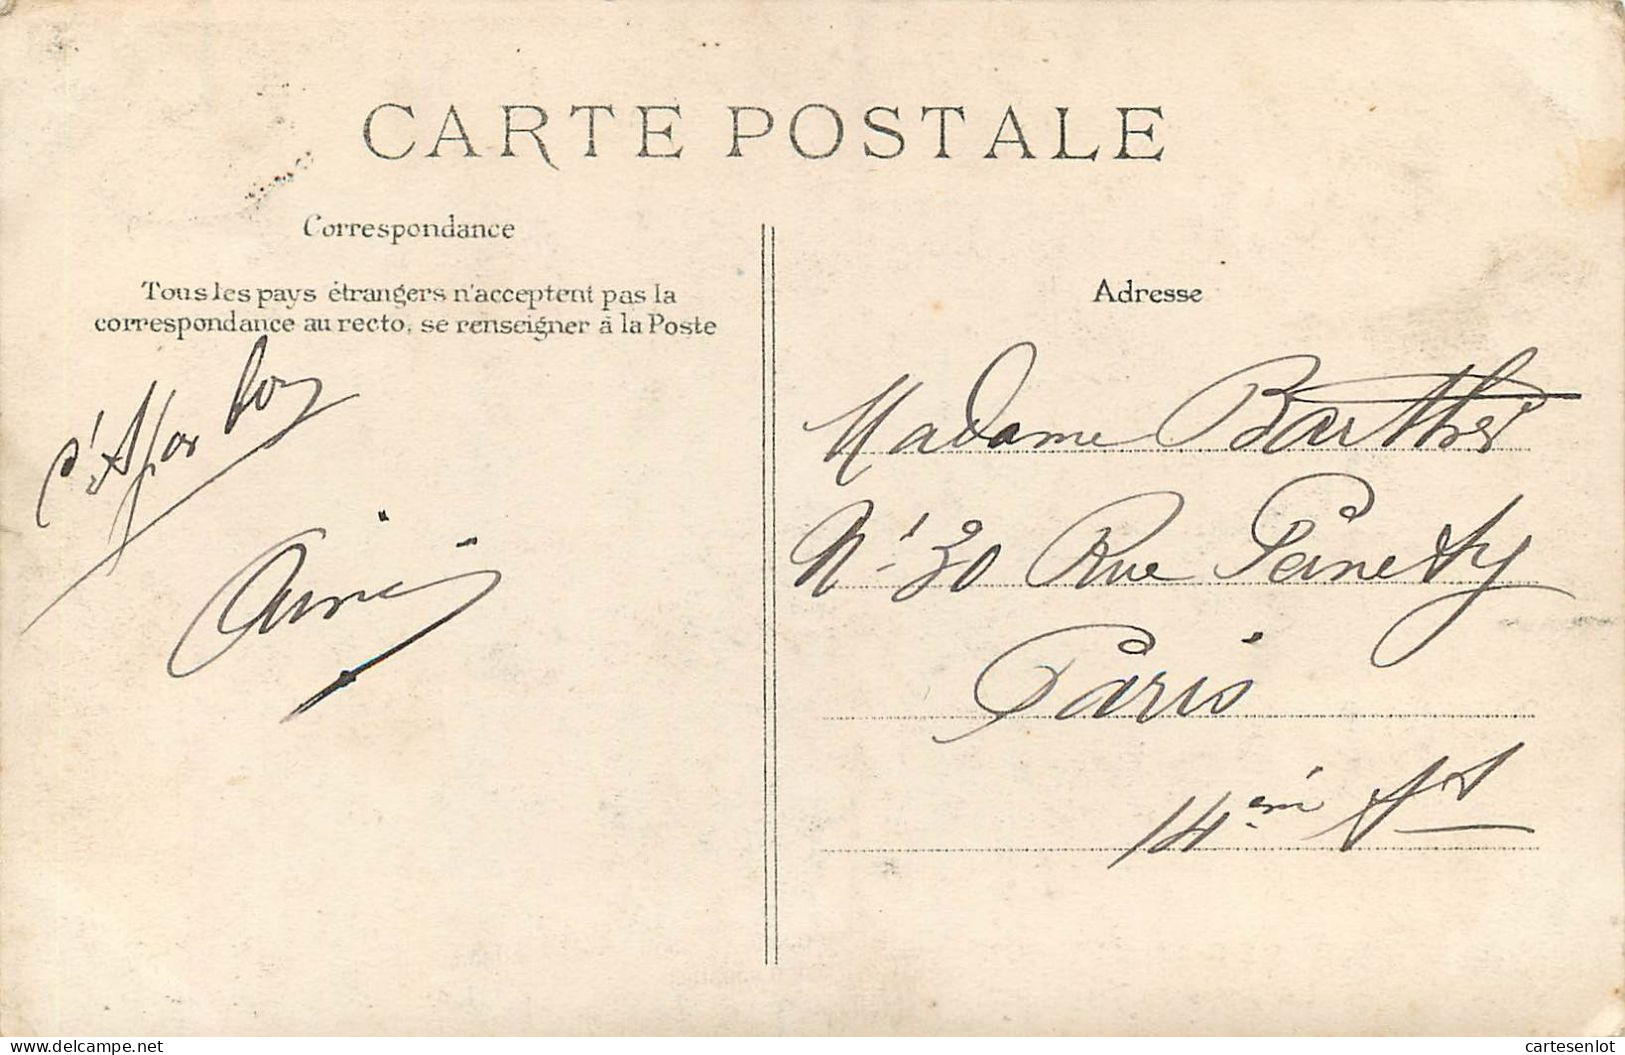 CARTE POSTALE
Correspondance
Tous les pays étrangers n'acceptent pas la
correspondance au recto, se renseigner à la Poste
Adresse
Madame Barthes
N° 30 Rue
Paris
14ème
cartesenlot
www.delcampe.net